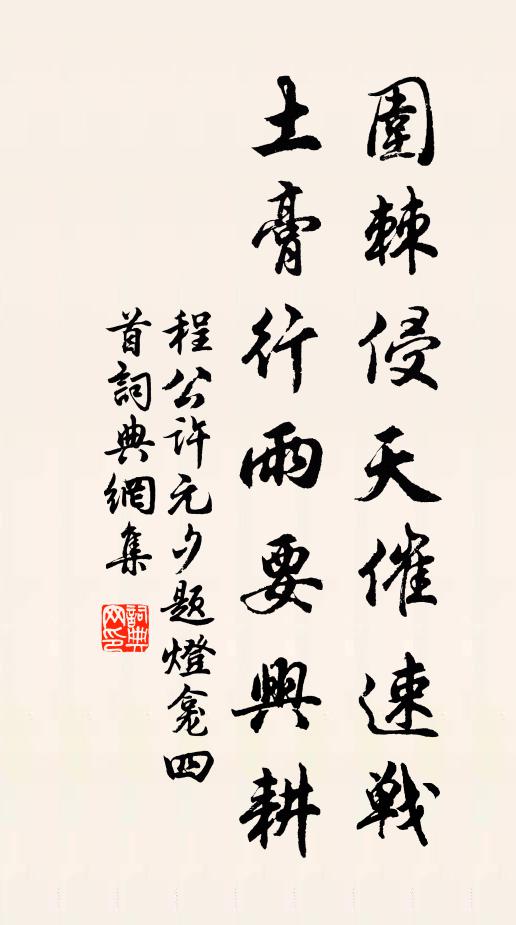 圍棘侵天催速戰
土膏行雨要興耕
程公許元夕題燈龕四
首詞典網集
詞典
網印